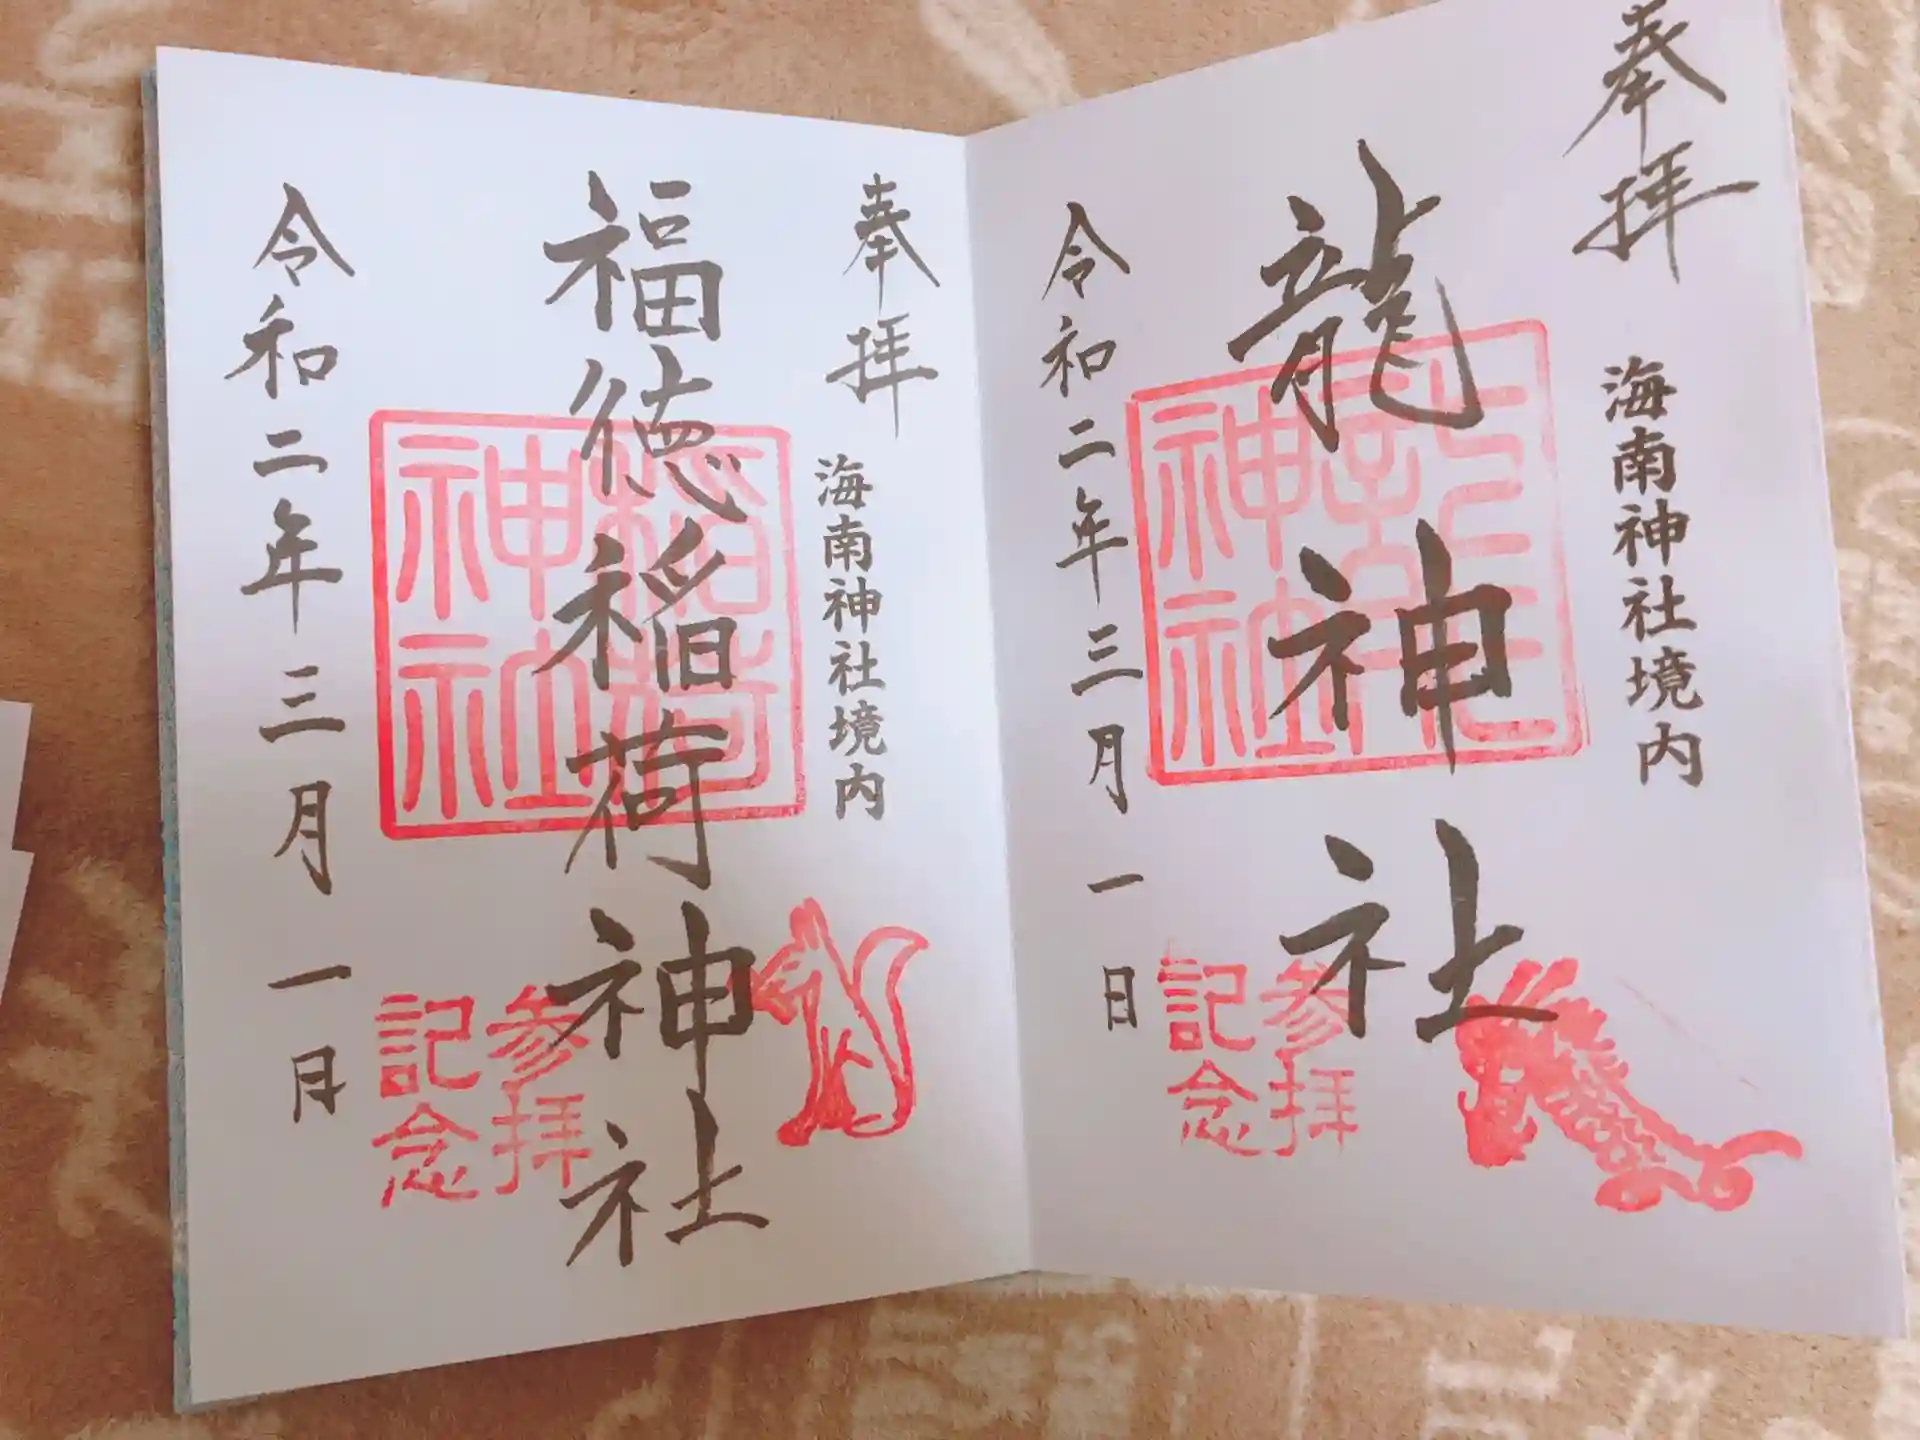 奉拝
海南神社境内
龍神社
龍宮神社
参拝
記念
令和二年三月一日
奉拝
海南神社境内
福徳稲荷神社
稲荷
神社
参拝
記念
令和二年三月一日